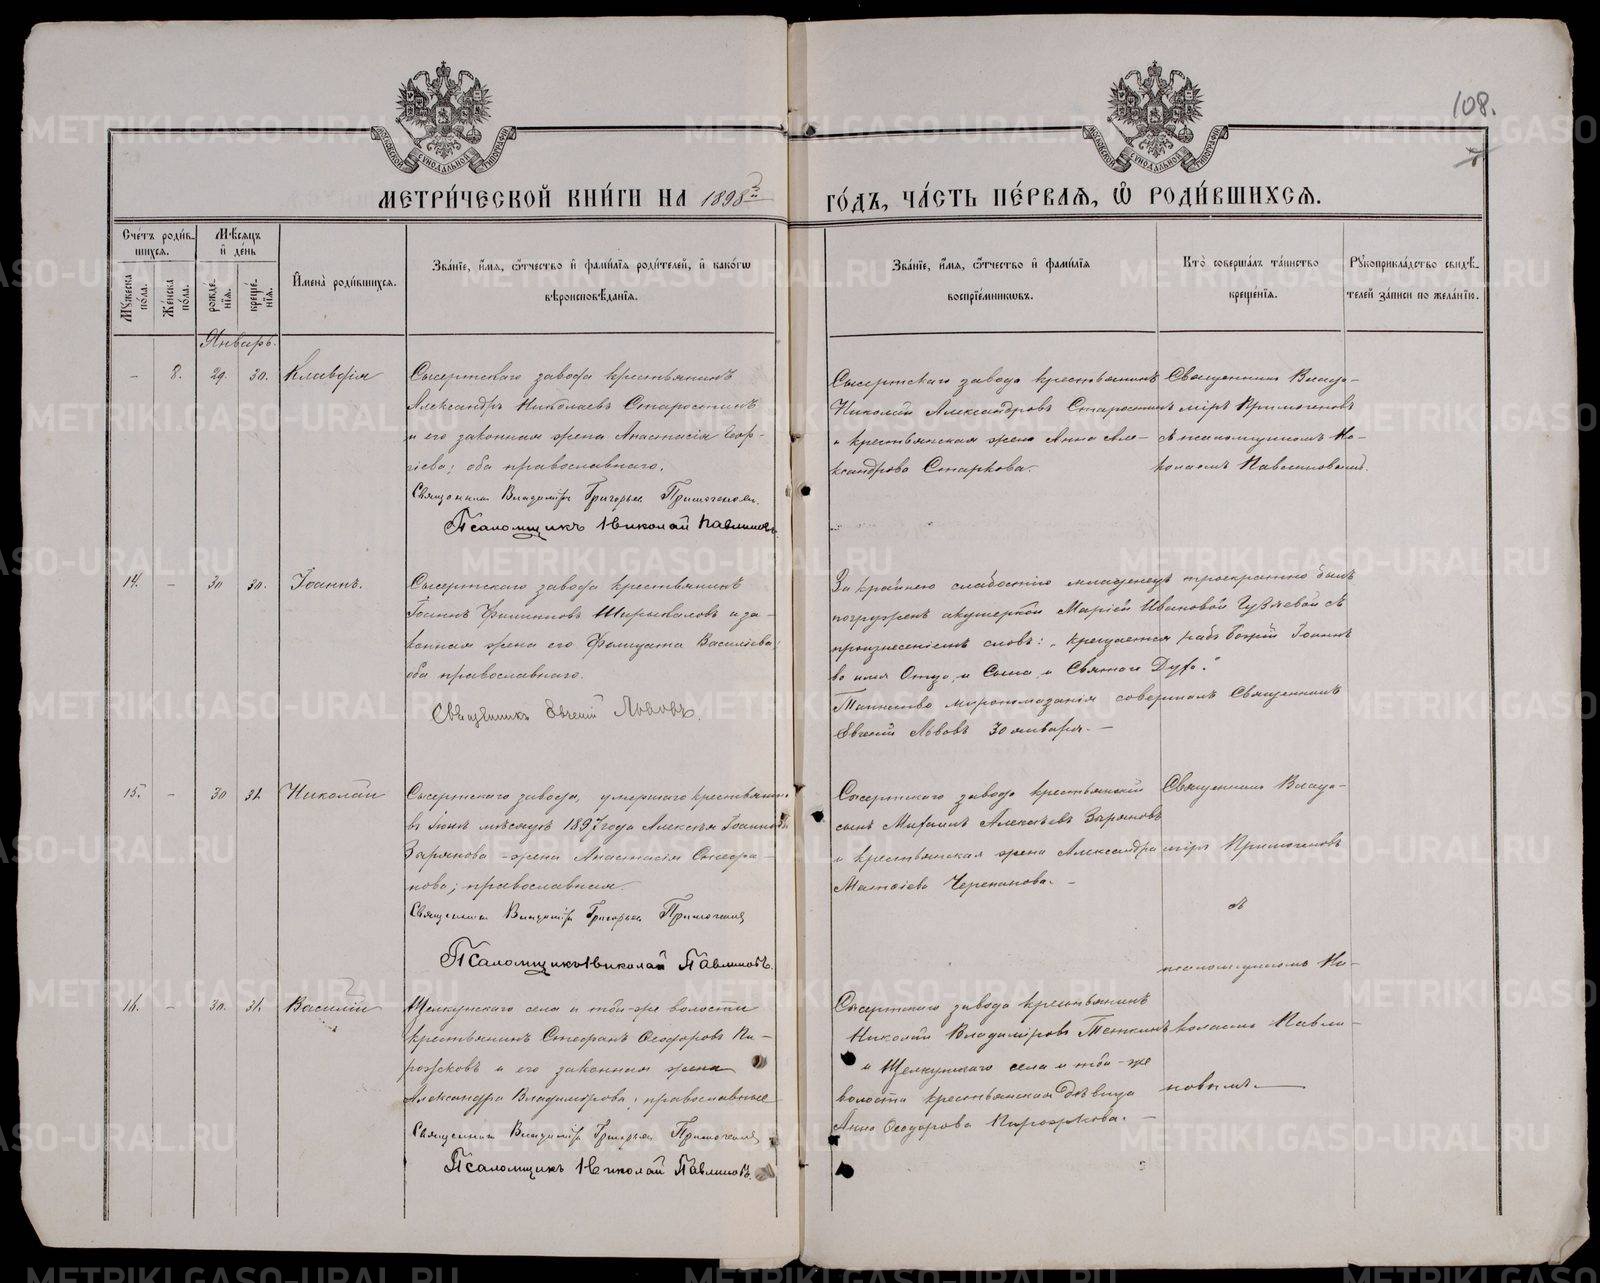 108.
МЕТРИЧЕСКОЙ КНИГИ НА 1898й ГОДЪ, ЧАСТЬ ПЕРВАЯ, Ѿ РОДИВШИХСЯ.
Счетъ родившихся.
Мужеска пола.
Женска пола.
Мѣсяцъ и день
рожденія.
крещенія.
Имена родившихся.
Званіе, имя, отчество и фамилія родителей, и какогѡ вѣроисповѣданія.
Званіе, имя, отчество и фамилія воспріемниковъ.
Кто совершалъ таинство крещенія.
Рукоприкладство свидѣтелей записи по желанію.
Январь.
- 8. 29. 30. Клавдія
Сысертскаго завода крестьянинъ
Александръ Николаевъ Старостинъ
и его законная жена Анастасія Геор-
гіева; оба православнаго.
Священникъ Владиміръ Григорьевъ Примогеновъ
Псаломщикъ Николай Павлиновъ
Сысертскаго завода крестьянинъ
Николай Александровъ Старостинъ
и крестьянская жена Анна Але-
ксандрова Старкова.-
Священникъ Влади-
міръ Примогеновъ
съ псаломщикомъ Ни-
колаемъ Павлиновымъ.
14. - 30 30. Іоаннъ.
Сысертскаго завода крестьянинъ
Іоаннъ Филипповъ и за-
конная жена его Васильева;
оба православнаго.
Священникъ Евгеній Львовъ.
За крайнею слабостію младенецъ троекратно былъ
погруженъ акушеркой Маріей Ивановой съ
произнесеніемъ словъ: „крещается рабъ Божій Іоаннъ
во имя Отца, и Сына, и Святаго Духа."
Таинство миропомазанія совершалъ Священникъ
Евгеній Львовъ 30 января. -
15. - 30 31. Николай
Сысертскаго завода, умершаго крестьянина
въ Іюнѣ мѣсяцѣ 1897 года Алексѣя Іоаннова
Зырянова -жена Анастасія Стефа-
нова; православная.
Священникъ Владиміръ Григорьевъ Примогеновъ
Псаломщикъ Николай Павлиновъ.
Сысертскаго завода крестьянскій
сынъ Михаилъ Алексѣевъ Зыряновъ
и крестьянская жена Александра
Матѳіева Черепанова. -
Священникъ Влади-
міръ Примогеновъ
съ
псаломщикомъ Ни-
колаемъ Павли-
новымъ.-
16. - 30. 31. Василій
Щелкунскаго села и той-же волости
крестьянинъ Стефанъ Ѳеодоровъ Пи-
рожковъ и его законная жена
Александра Владимірова; православные
Священникъ Владиміръ Григорьевъ Примогеновъ
Псаломщикъ Николай Павлиновъ.
Сысертскаго завода крестьянинъ
Николай Владиміровъ Теткинъ
и Щелкунскаго села и той-же
волости крестьянская дѣвица
Анна Ѳеодорова Пирожкова. -